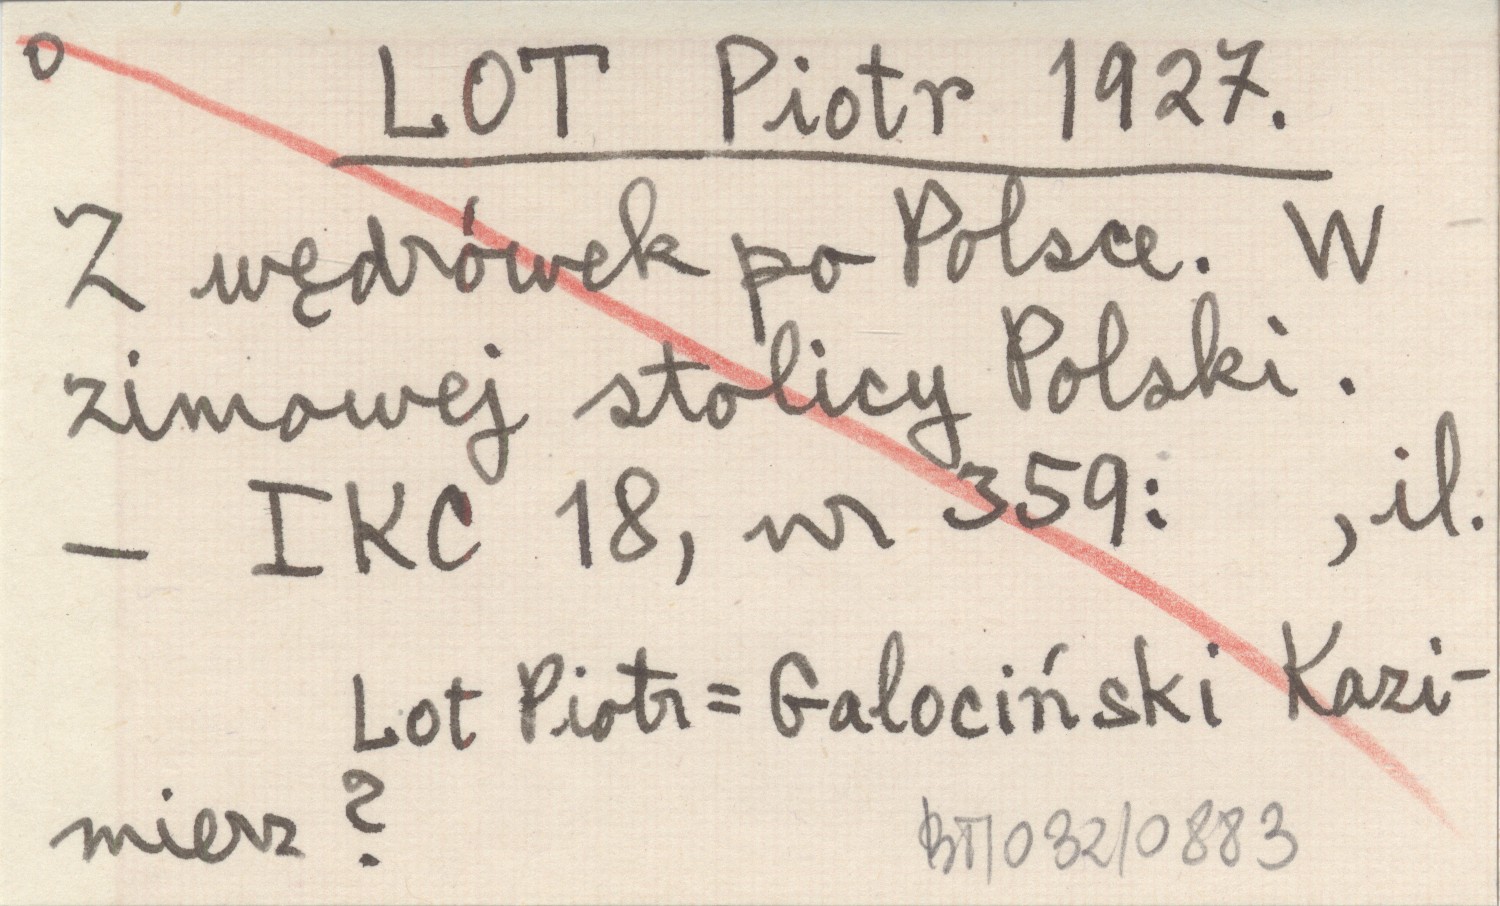 o
LOT Piotr 1927.
Z wędrówek po Polsce. W
zimowej stolicy Polski.
– IKC 18, nr 359: , il.
Lot Piotr = Gałociński Kazi-
mierz?
BT/032/0883